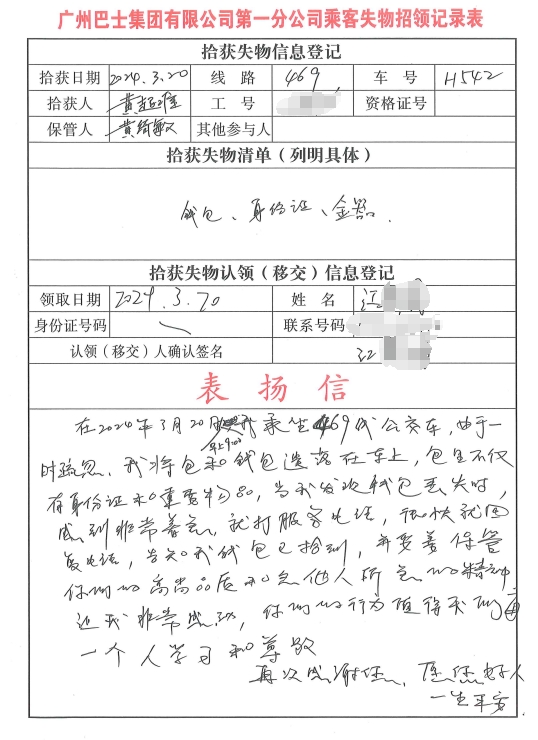 广州巴士集团有限公司第一分公司乘客失物招领记录表
拾获失物信息登记
拾获日期 2024.3.20 线路 469 车号 H542
拾获人 黄 工号 资格证号
保管人 黄绮敏 其他参与人
拾获失物清单（列明具体）
钱包、身份证、金器.
拾获失物认领（移交）信息登记
领取日期 2024.3.20 姓名 江
身份证号码 联系号码
认领（移交）人确认签名 江
表扬信
在2024年3月20日早上9:00我乘坐469线公交车,由于一
时疏忽、我将包和钱包遗落在车上,包里不仅
有身份证和重要物品,当我发现钱包丢失时,
感到非常着急,就打服务电话,很快就回
复电话,告知我钱包已捡到,并妥善保管
你们的高尚品质和急他人所急的精神
让我非常感动,你们的行为值得我们每
一个人学习和尊敬
再次感谢您、愿您好人
一生平安